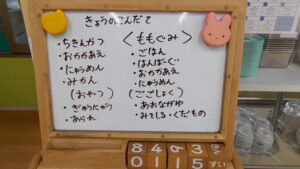 きょうのこんだて
・ちきんかつ
・おかかあえ
・にゅうめん
・みかん
(おやつ)
・ぎゅうにゅう
・あられ
<ももぐみ>
・ごはん
・はんばーぐ
・おかかあえ
・にゅうめん
(ごごしょく)
・あおながゆ
・みそしる・くだもの
8 4 6 3
0 1 1 5 すい